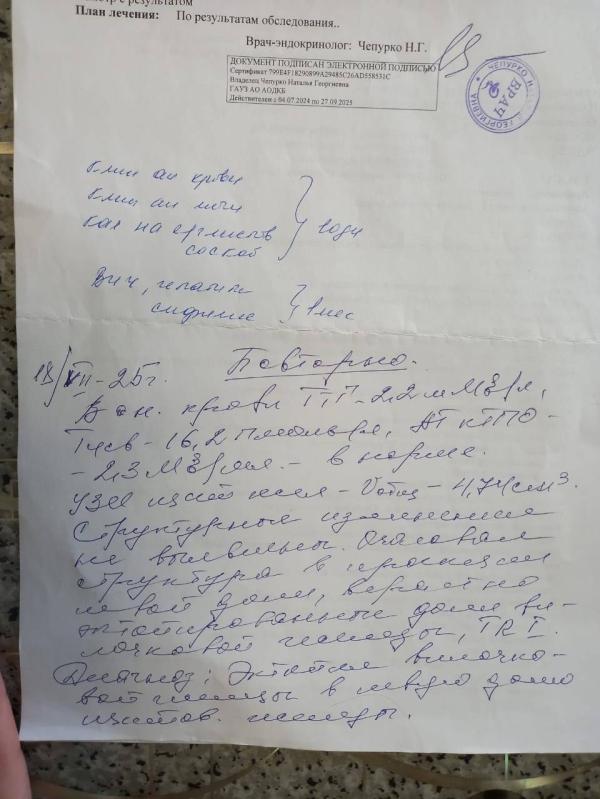 мотр с результатом
План лечения: По результатам обследования..
Врач-эндокринолог: Чепурко Н.Г.
ДОКУМЕНТ ПОДПИСАН ЭЛЕКТРОННОЙ ПОДПИСЬЮ
Сертификат 799E4F18290899A29485C26AD558531C
Владелец Чепурко Наталья Георгиевна
ГАУЗ АО АОДКБ
Действителен с 04.07.2024 по 27.09.2025
ЧЕПУРКО Н ГЕОРГИЕВНА
ВРАЧ
Клин ан крови
Клин ан мочи
Кал на яглистов
соскоб
10дн
Вич, гепатит
сифилис
1мес
18/VII-25г. Повторно.
В ан. крови ТТГ-2,2мМЕ/л,
Т4св-16,2 Пмоль/л, АТ кТПО-
-2,3МЕ/мл - в норме.
УЗИ щит жел-Vобщ-4,74см³.
Структурные изменение
не выявлены. Очаговая
структура в проекции
левой доли, вероятно
эктопированные доли ви-
лочковой железы, TR I.
Диагноз: Эктопия вилочко-
вой железы в левую долю
щитов. железы.